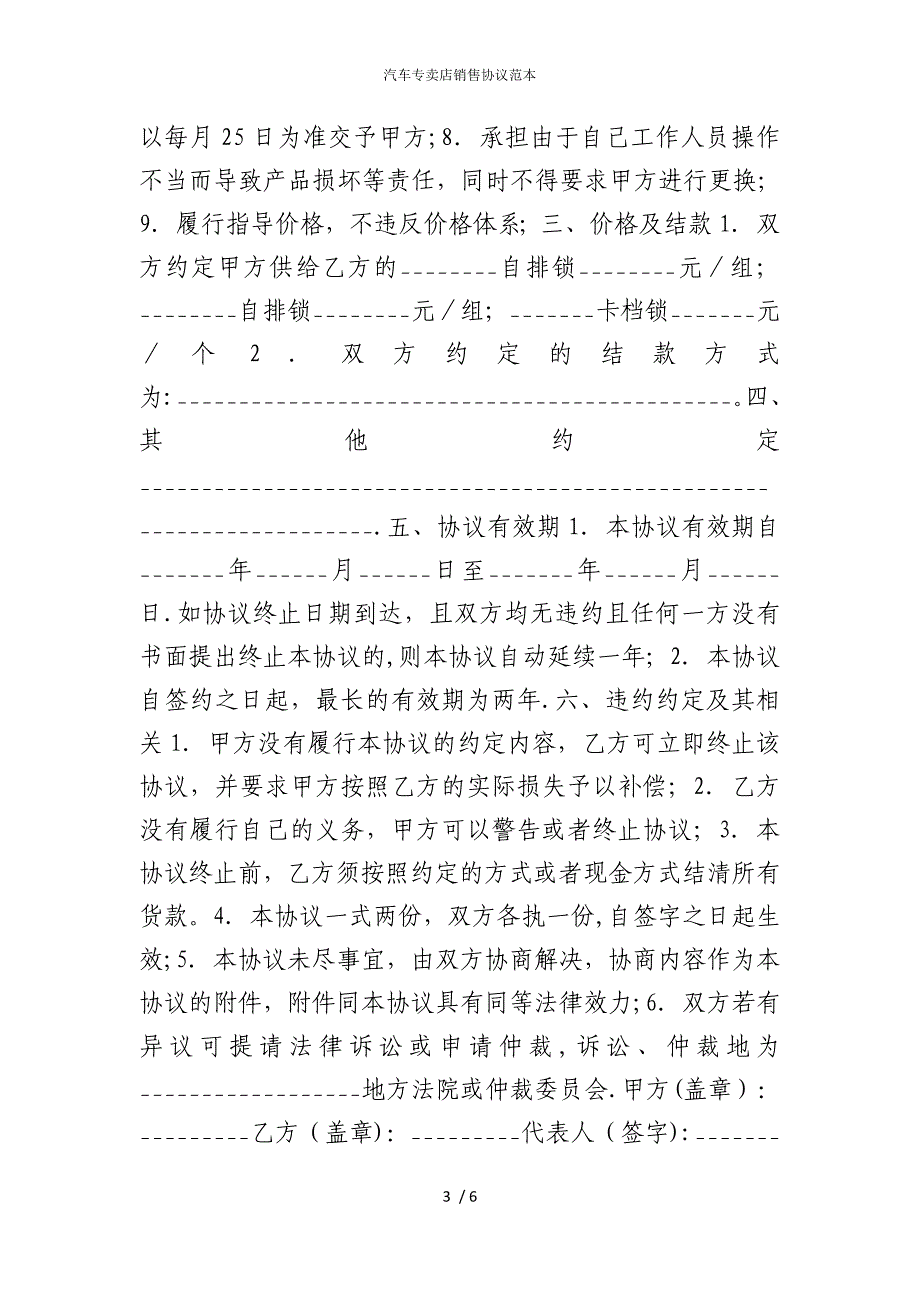 汽车专卖店销售协议范本
以每月25日为准交予甲方;8．承担由于自己工作人员操作
不当而导致产品损坏等责任，同时不得要求甲方进行更换；
9．履行指导价格，不违反价格体系；三、价格及结款1．双
方约定甲方供给乙方的________自排锁________元／组；
________自排锁________元／组；_______卡档锁_______元
／个2．双方约定的结款方式
为:______________________________________________。四、
其他约定
____________________________________________________
____________________.五、协议有效期1．本协议有效期自
_______年______月______日至_______年______月______
日.如协议终止日期到达，且双方均无违约且任何一方没有
书面提出终止本协议的,则本协议自动延续一年；2．本协议
自签约之日起，最长的有效期为两年.六、违约约定及其相
关1．甲方没有履行本协议的约定内容，乙方可立即终止该
协议，并要求甲方按照乙方的实际损失予以补偿；2．乙方
没有履行自己的义务，甲方可以警告或者终止协议；3．本
协议终止前，乙方须按照约定的方式或者现金方式结清所有
货款。4．本协议一式两份，双方各执一份,自签字之日起生
效;5．本协议未尽事宜，由双方协商解决，协商内容作为本
协议的附件，附件同本协议具有同等法律效力;6．双方若有
异议可提请法律诉讼或申请仲裁,诉讼、仲裁地为
__________________地方法院或仲裁委员会.甲方(盖章）：
_________乙方（盖章)：_________代表人（签字)：_______
3 / 6